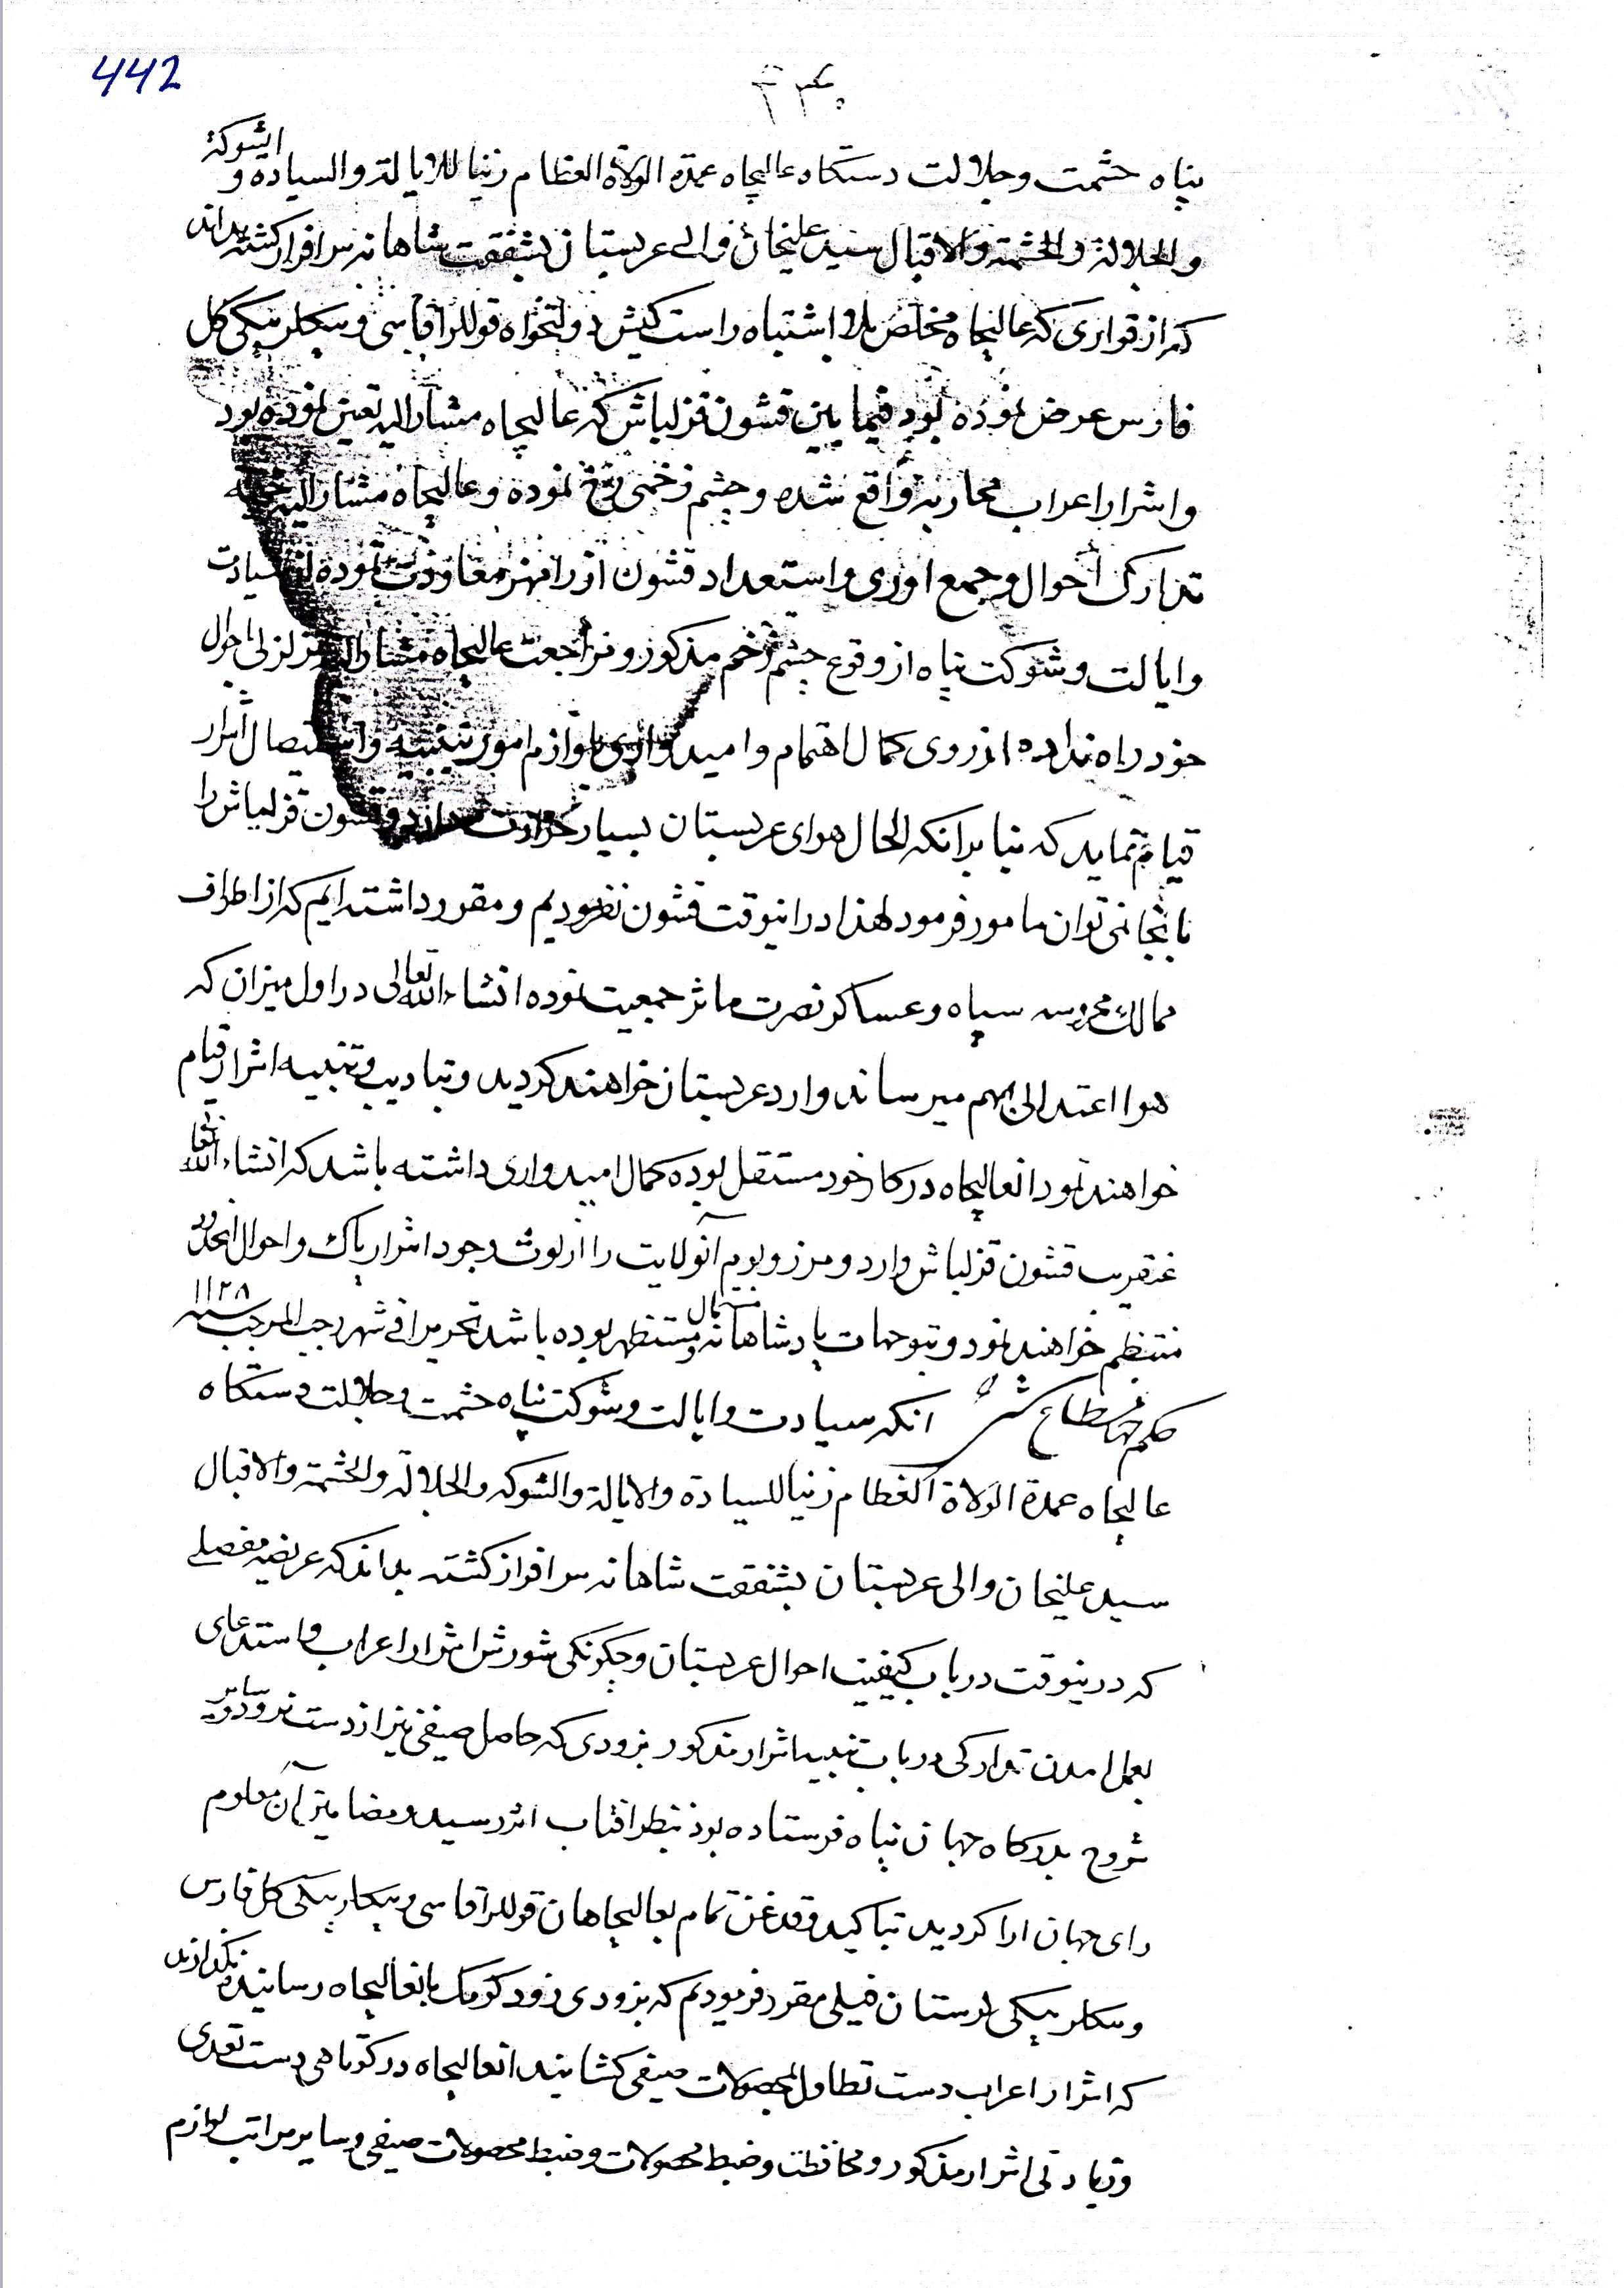 442
پناه حشمت وجلالت دستکاه عالیجاه عمدة الولاة العظام زینا للایالة والسیاده و الشوکة
والجلالة والحشمة والاقبال سید علیخان والی عربستان بشفقت شاهانه سرافراز کشته بداند
که از قراری که عالیجاه مخلص بلا اشتباه راست کیش دولتخواه قوللر آقاسی وبیکلربیکی کل
فارس عرض نموده بود فیما بین قشون قزلباش که عالیجاه مشار الیه تعین نموده بود
واشرار اعراب محاربه واقع شده وچشم زخمی رخ نموده وعالیجاه مشار الیه بجهه
تدارک احوال وجمع اوری واستعداد قشون از رامهرمز معاودت نموده ان سیادت
وایالت وشوکت پناه از وقوع چشم زخم مذکور ومراجعت عالیجاه مشار الیه تزلزلی باحوال
خود راه نداده از روی کمال اهتمام وامیدواری بلوازم امور تنبیه واستیصال اشرار
قیام نماید که بنا بر انکه الحال هوای عربستان بسیار حرارت دارد وقشون قزلباش را
بانجا نمی توان مامور فرمود لهذا در اینوقت قشون نفرمودیم ومقرر داشته ایم که از اطراف
ممالک محروسه سپاه وعساکر نصرت ماثر جمعیت نموده انشاء الله تعالی در اول میزان که
هوا اعتدالی بهم میرساند وارد عربستان خواهند کردید وبتادیب وتنبیه اشرار قیام
خواهند نمود انعالیجاه در کار خود مستقل بوده کمال امیدواری داشته باشد که انشاء الله تعا
عنقریب قشون قزلباش وارد ومرز وبوم آنولایت را از لوث وجود اشرار پاک واحوال انحدود
منتظم خواهند نمود وبتوجهات پادشاهانه مستمال و مستظهر بوده باشد تحریرا فی شهر رجب المرجب سنه ۱۱۲۸
حکم جهانمطاع شد انکه سیادت وایالت وشوکت پناه حشمت وجلالت دستکاه
عالیجاه عمدة الولاة العظام زینا للسیادة والایالة والشوکه والجلالة والحشمة والاقبال
سید علیخان والی عربستان بشفقت شاهانه سرافراز کشته بداند که عریضه مفصلی
که درینوقت در باب کیفیت احوال عربستان وچکونکی شورش اشرار اعراب واستدعای
بعمل امدن تدارکی در باب تنبیه اشرار مذکور بزودی که حاصل صیفی نیز از دست نرود و سایر
شروح بدرکاه جهان پناه فرستاده بود بنظر افتاب اثر رسید ومضامین آن معلوم
رای جهان ارا کردید بتاکید وقدغن تمام بعالیجاهان قوللر آقاسی وبیکلربیکی کل فارس
وبیکلربیکی لرستان فیلی مقرر فرمودیم که بزودی زود کومک بانعالیجاه رسانیده نکذارند
که اشرار اعراب دست تطاول بمحصولات صیفی کشایند انعالیجاه در کوتاهی دست تعدی
وزیادتی اشرار مذکور ومحافظت وضبط محصولات وضبط محصولات صیفی وسایر مراتب لوازم